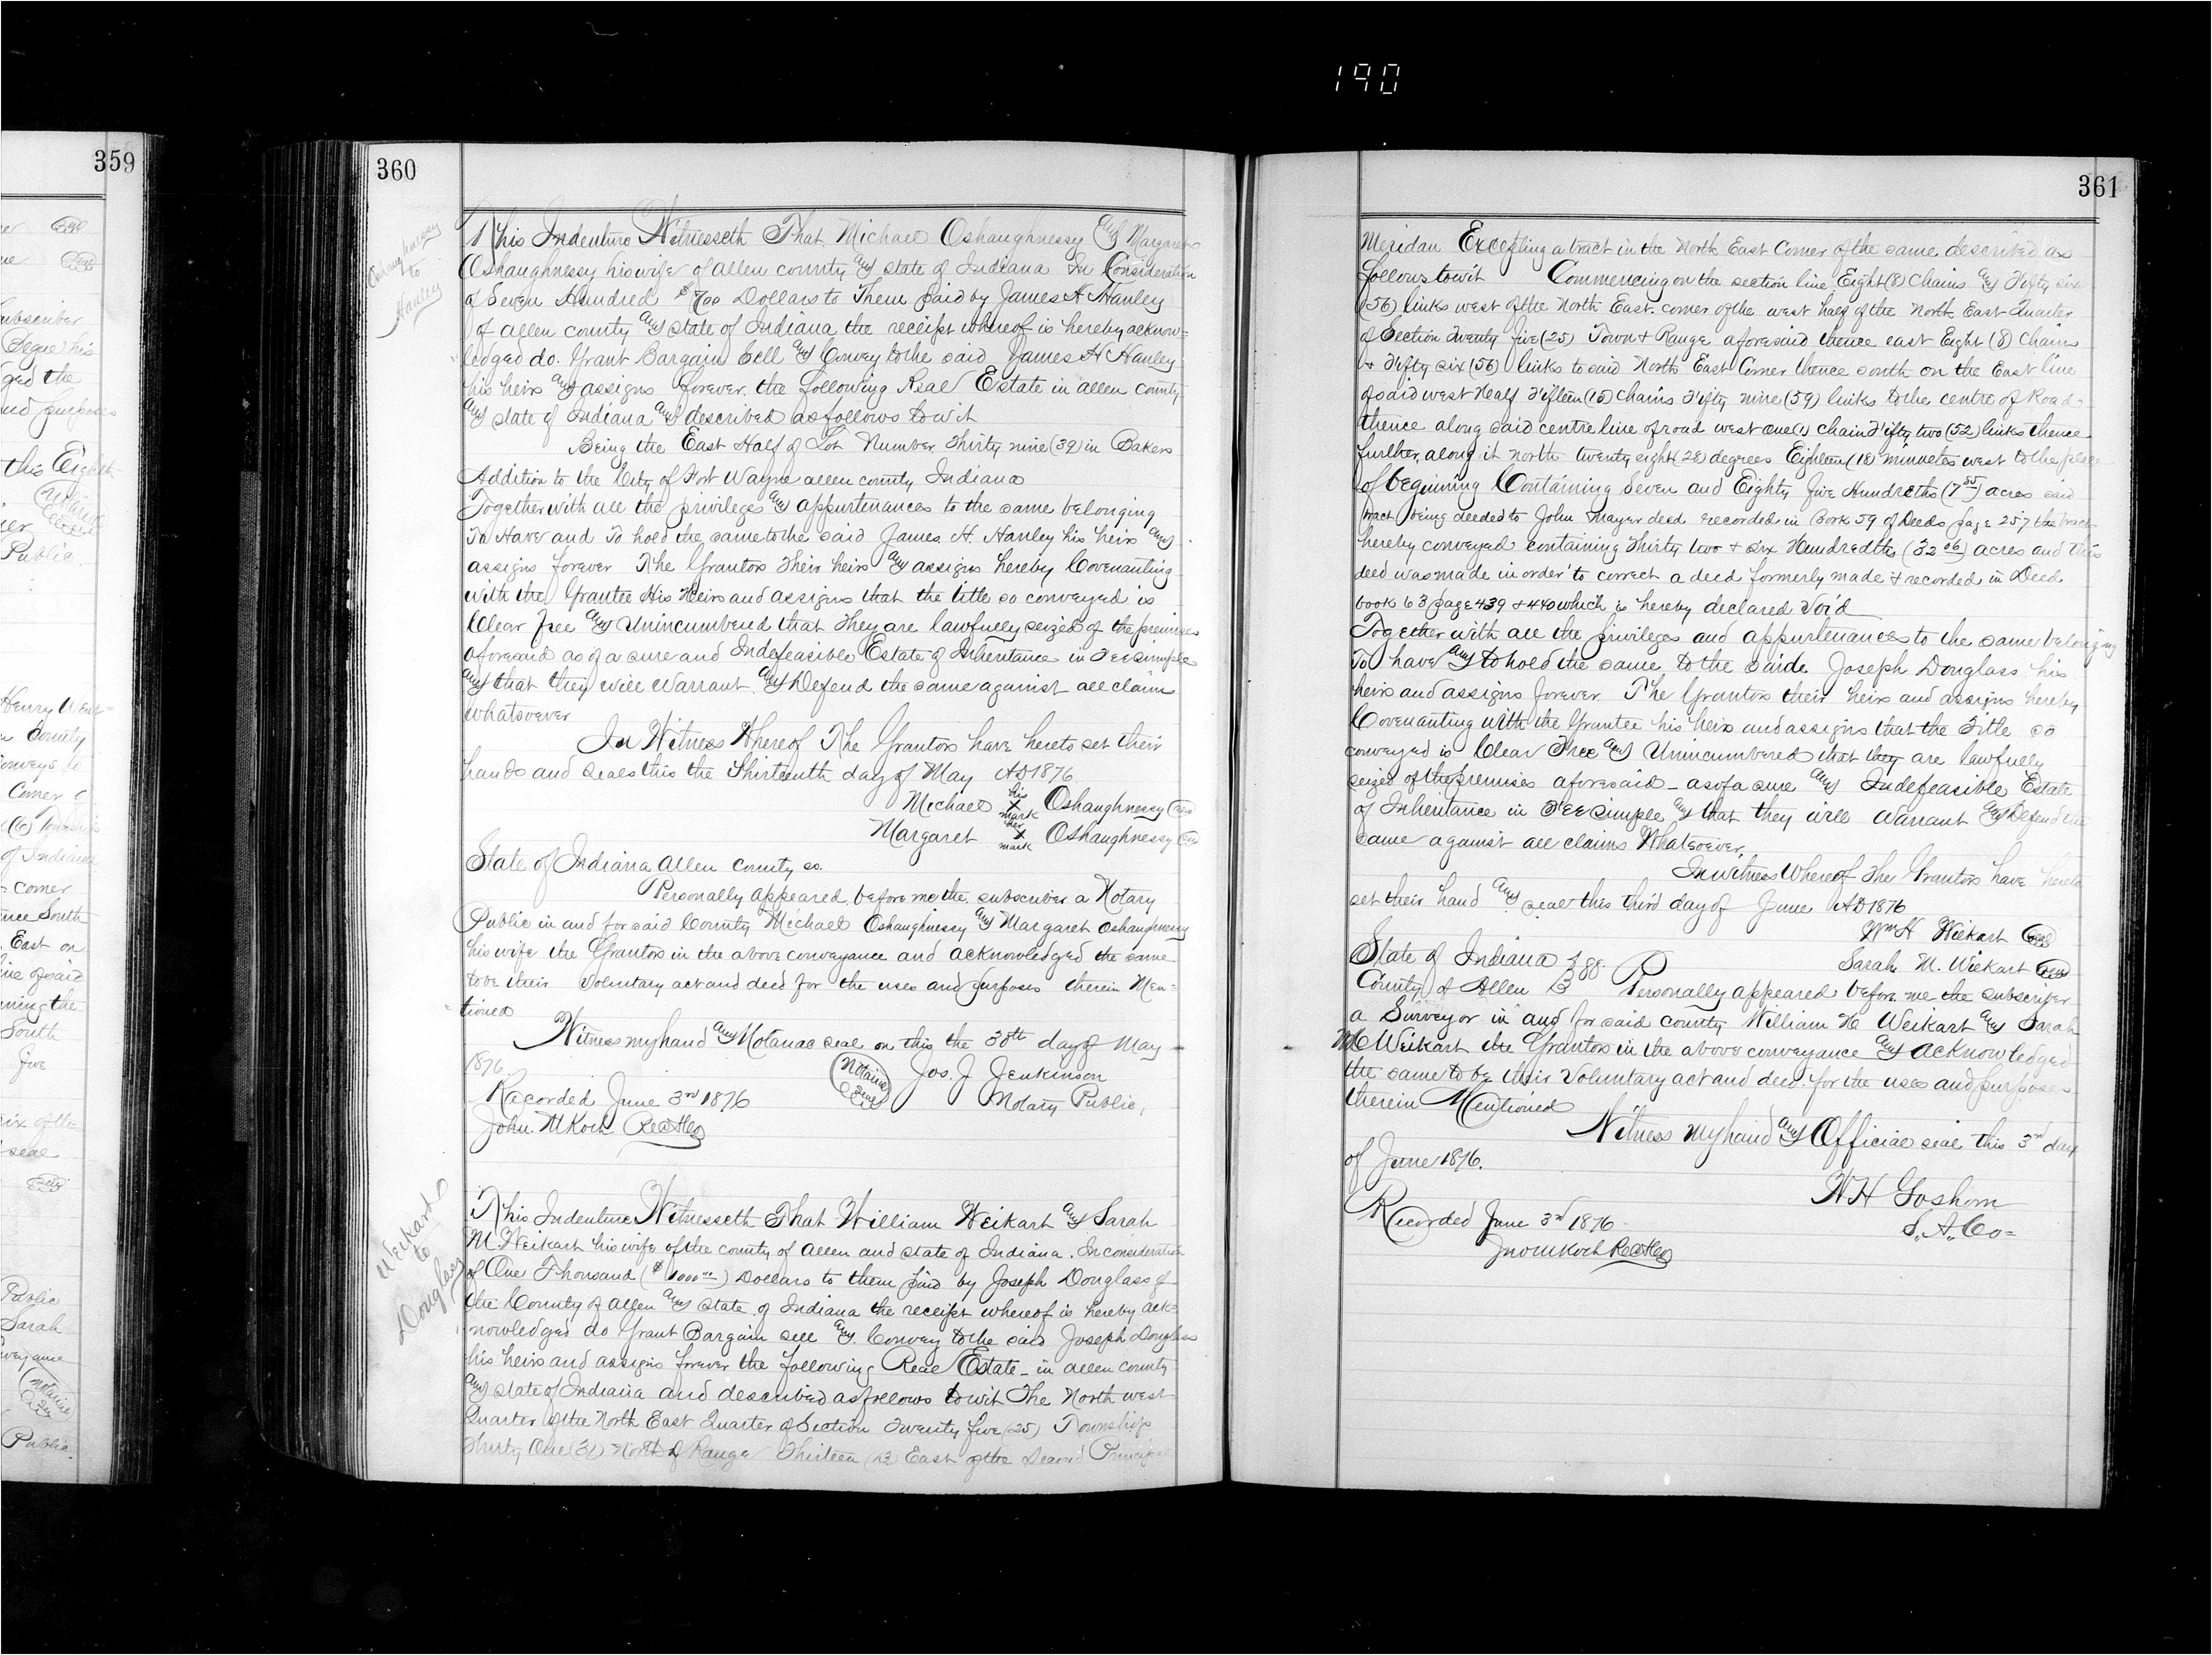 190
359
ubscriber
ged the
und purposes
this Eighth
Public
Henry Went=
County
Conveys to
Corner
(6) Township
of Indiana
corner
nce South
East on
line of said
ning the
South
five
six of the
seal
Public
Sarah
veyance
Notarial
Seal
Public
360
Oshaughnessy
to
Hanley
This Indenture Witnesseth That Michael Oshaughnessy and Margaret
Oshaughnessy his wife of Allen county and state of Indiana In Consideration
of Seven Hundred $700 Dollars to Them paid by James H Hanley
of Allen county and state of Indiana the receipt whereof is hereby acknow=
ledged do. Grant Bargain Sell and Convey to the said James H Hanley
his heirs and assigns forever. the following Real Estate in Allen county
and state of Indiana and described as follows to wit
Being the East Half of Lot Number Thirty nine (39) in Bakers
Addition to the City of Fort Wayne Allen county Indiana
Together with all the privileges and appurtenances to the same belonging
To Have and To hold the same to the said James H. Hanley his heirs and
assigns forever The Grantors Their heirs and assigns hereby Covenanting
with the Grantee His Heirs and assigns that the title so conveyed is
Clear Free and Unincumbered that They are lawfully seized of the premises
aforesaid as of a sure and Indefeasible Estate of Inheritance in Fee simple
and that they will Warrant and Defend the same against all claims
whatsoever
In Witness Whereof The Grantors have hereto set their
hands and seals this the Thirteenth day of May AD 1876.
Michael his X mark Oshaughnessy Seal
Margaret her X mark Oshaughnessy Seal
State of Indiana Allen County ss.
Personally appeared before me the subscriber a Notary
Public in and for said County Michael Oshaughnessy and Margaret Oshaughnessy
his wife the Grantors in the above conveyance and acknowledged the same
to be their Voluntary act and deed for the uses and purposes therein Men=
tioned
Witness my hand and Notarial seal on this the 30th day of May
1876. Notarial Seal Jos. J Jenkinson
Recorded June 3rd 1876 Notary Public,
John. M Koch Rec
Weikart
to
Douglass
This Indenture Witnesseth That William Weikart and Sarah
M. Weikart his wife of the county of Allen and state of Indiana. In consideration
of One Thousand ($1000.00) Dollars to them paid by Joseph Douglass of
the County of Allen and state of Indiana the receipt whereof is hereby ack=
nowledged do Grant Bargain sell and Convey to the said Joseph Douglass
his heirs and assigns forever the following Real Estate in Allen county
and state of Indiana and described as follows to wit The North west
Quarter of the North East Quarter of Section Twenty five (25) Township
Thirty One (31) North of Range Thirteen (13) East of the Second Principal
361
Meridan Excepting a tract in the North East Corner of the same described as
follows to wit Commencing on the section line Eight (8) Chains and Fifty six
(56) links west of the North East corner of the west half of the North East Quarter
of Section Twenty five (25) Town + Range aforesaid thence east Eight (8) Chains
+ Fifty six (56) links to said North East Corner thence south on the East line
of said west Half Fifteen (15) Chains Fifty nine (59) links to the centre of Road
thence along said centre line of road west one (1) chain Fifty two (52) links thence
further, along it north twenty eight (28) degrees Eighteen (18) minuetes west to the place
of beginning Containing Seven and Eighty five Hundreths (7 85) acres said
tract being deeded to John Mayer deed recorded in Book 59 of Deeds page 257 the tract
hereby conveyed containing Thirty two + six Hundredths (32 06) acres and this
deed was made in order to correct a deed formerly made + recorded in Deed
book 63 page 439 + 440 which is hereby declared Void
Together with all the privileges and appurtenances to the same belonging
To have and to hold the same to the saide Joseph Douglass his
heirs and assigns forever The Grantors their heirs and assigns hereby
Covenanting with the Grantee his heirs and assigns that the Title so
conveyed is Clear Free and Unincumbered that they are lawfully
seized of the premises aforesaid as of a sure and Indefeasible Estate
of Inheritance in Fee simple and that they will Warrant and Defend the
same against all claims Whatsoever.
In witness Whereof The Grantors have hereto
set their hand and seal this third day of June AD 1876
Wm H Weikart Seal
Sarah M. Weikart Seal
State of Indiana } ss.
County of Allen } Personally appeared before me the subscriber
a Surveyor in and for said county William H Weikart and Sarah
M Weikart the Grantors in the above conveyance and acknowledged
the same to be their Voluntary act and deed for the uses and purposes
therein Mentioned
Witness my hand and Official seal this 3rd day
of June 1876.
W H Goshorn
Recorded June 3rd 1876
S. A. Co=
Jno M Koch Rec